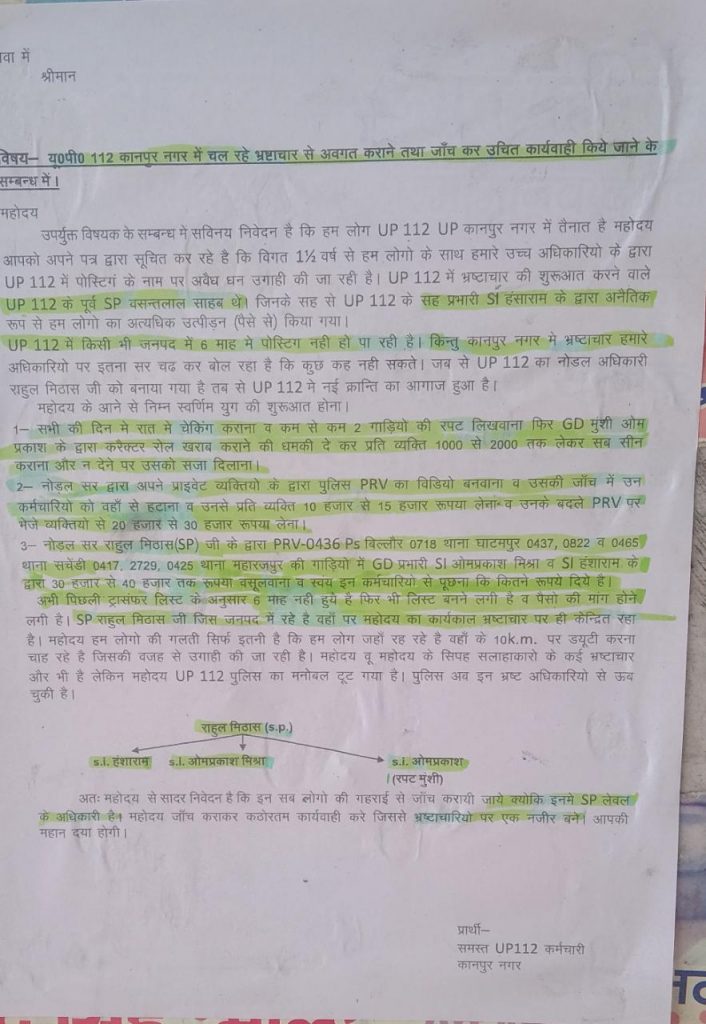 वा में
श्रीमान
विषय– यू0पी0 112 कानपुर नगर में चल रहे भ्रष्टाचार से अवगत कराने तथा जाँच कर उचित कार्यवाही किये जाने के
सम्बन्ध में।
महोदय
उपर्युक्त विषयक के सम्बन्ध में सविनय निवेदन है कि हम लोग UP 112 UP कानपुर नगर में तैनात है महोदय
आपको अपने पत्र द्वारा सूचित कर रहे है कि विगत 1½ वर्ष से हम लोगो के साथ हमारे उच्च अधिकारियो के द्वारा
UP 112 में पोस्टिगं के नाम पर अवैध धन उगाही की जा रही है। UP 112 में भ्रष्टाचार की शुरूआत करने वाले
UP 112 के पूर्व SP वसन्तलाल साहब थे। जिनके सह से UP 112 के सह प्रभारी SI हंसाराम के द्वारा अनैतिक
रूप से हम लोगो का अत्यधिक उत्पीड़न (पैसे से) किया गया।
UP 112 में किसी भी जनपद में 6 माह मे पोस्टिग नही हो पा रही है। किन्तु कानपुर नगर मे भ्रष्टाचार हमारे
अधिकारियो पर इतना सर चढ कर बोल रहा है कि कुछ कह नही सकते। जब से UP 112 का नोडल अधिकारी
राहुल मिठास जी को बनाया गया है तब से UP 112 मे नई क्रान्ति का आगाज हुआ है।
महोदय के आने से निम्न स्वर्णिम युग की शुरूआत होना।
1– सभी की दिन मे रात मे चेकिंग कराना व कम से कम 2 गाड़ियो की रपट लिखवाना फिर GD मुंशी ओम
प्रकाश के द्वारा करैक्टर रोल खराब कराने की धमकी दे कर प्रति व्यक्ति 1000 से 2000 तक लेकर सब सीन
कराना और न देने पर उसको सजा दिलाना।
2– नोडल सर द्वारा अपने प्राइवेट व्यक्तियो के द्वारा पुलिस PRV का विडियो बनवाना व उसकी जाँच में उन
कर्मचारियो को वहाँ से हटाना व उनसे प्रति व्यक्ति 10 हजार से 15 हजार रूपया लेना व उनके बदले PRV पर
भेजे व्यक्तियो से 20 हजार से 30 हजार रूपया लेना।
3– नोडल सर राहुल मिठास(SP) जी के द्वारा PRV-0436 Ps बिल्लौर 0718 थाना घाटमपुर 0437, 0822 व 0465
थाना सचेंडी 0417, 2729, 0425 थाना महारजपुर की गाड़ियो में GD प्रभारी SI ओमप्रकाश मिश्रा व SI हंशाराम के
द्वारा 30 हजार से 40 हजार तक रूपया वसूलवाना व स्वयं इन कर्मचारियो से पूछना कि कितने रूपये दिये है।
अभी पिछली ट्रासंफर लिस्ट के अनुसार 6 माह नही हुये है फिर भी लिस्ट बनने लगी है व पैसो की मांग होने
लगी है। SP राहुल मिठास जी जिस जनपद में रहे है वहाँ पर महोदय का कार्यकाल भ्रष्टाचार पर ही केन्द्रित रहा
है। महोदय हम लोगो की गलती सिर्फ इतनी है कि हम लोग जहाँ रह रहे है वहाँ के 10k.m. पर डयूटी करना
चाह रहे है जिसकी वजह से उगाही की जा रही है। महोदय वू महोदय के सिपह सलाहाकारो के कई भ्रष्टाचार
और भी है लेकिन महोदय UP 112 पुलिस का मनोबल टूट गया है। पुलिस अब इन भ्रष्ट अधिकारियो से ऊब
चुकी है।
राहुल मिठास (s.p.)
s.i. हंशाराम s.i. ओमप्रकाश मिश्रा s.i. ओमप्रकाश
(रपट मुंशी)
अतः महोदय से सादर निवेदन है कि इन सब लोगो की गहराई से जाँच करायी जाये क्योकि इनमे SP लेवल
के अधिकारी है। महोदय जाँच कराकर कठोरतम कार्यवाही करे जिससे भ्रष्टाचारियो पर एक नजीर बने। आपकी
महान दया होगी।
प्रार्थी–
समस्त UP112 कर्मचारी
कानपुर नगर